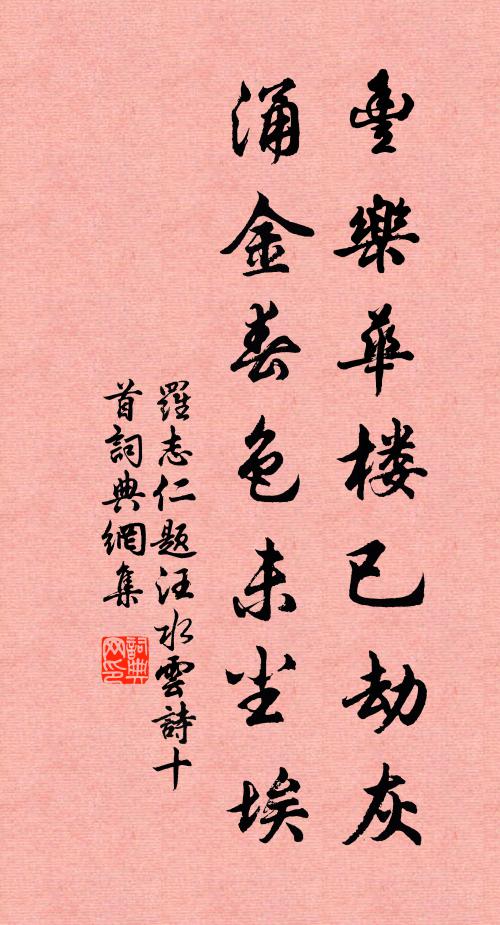 豐樂華楼已劫灰
涌金春色未尘埃
羅志仁題汪水雲詩十
首詞典網集
詞典网印